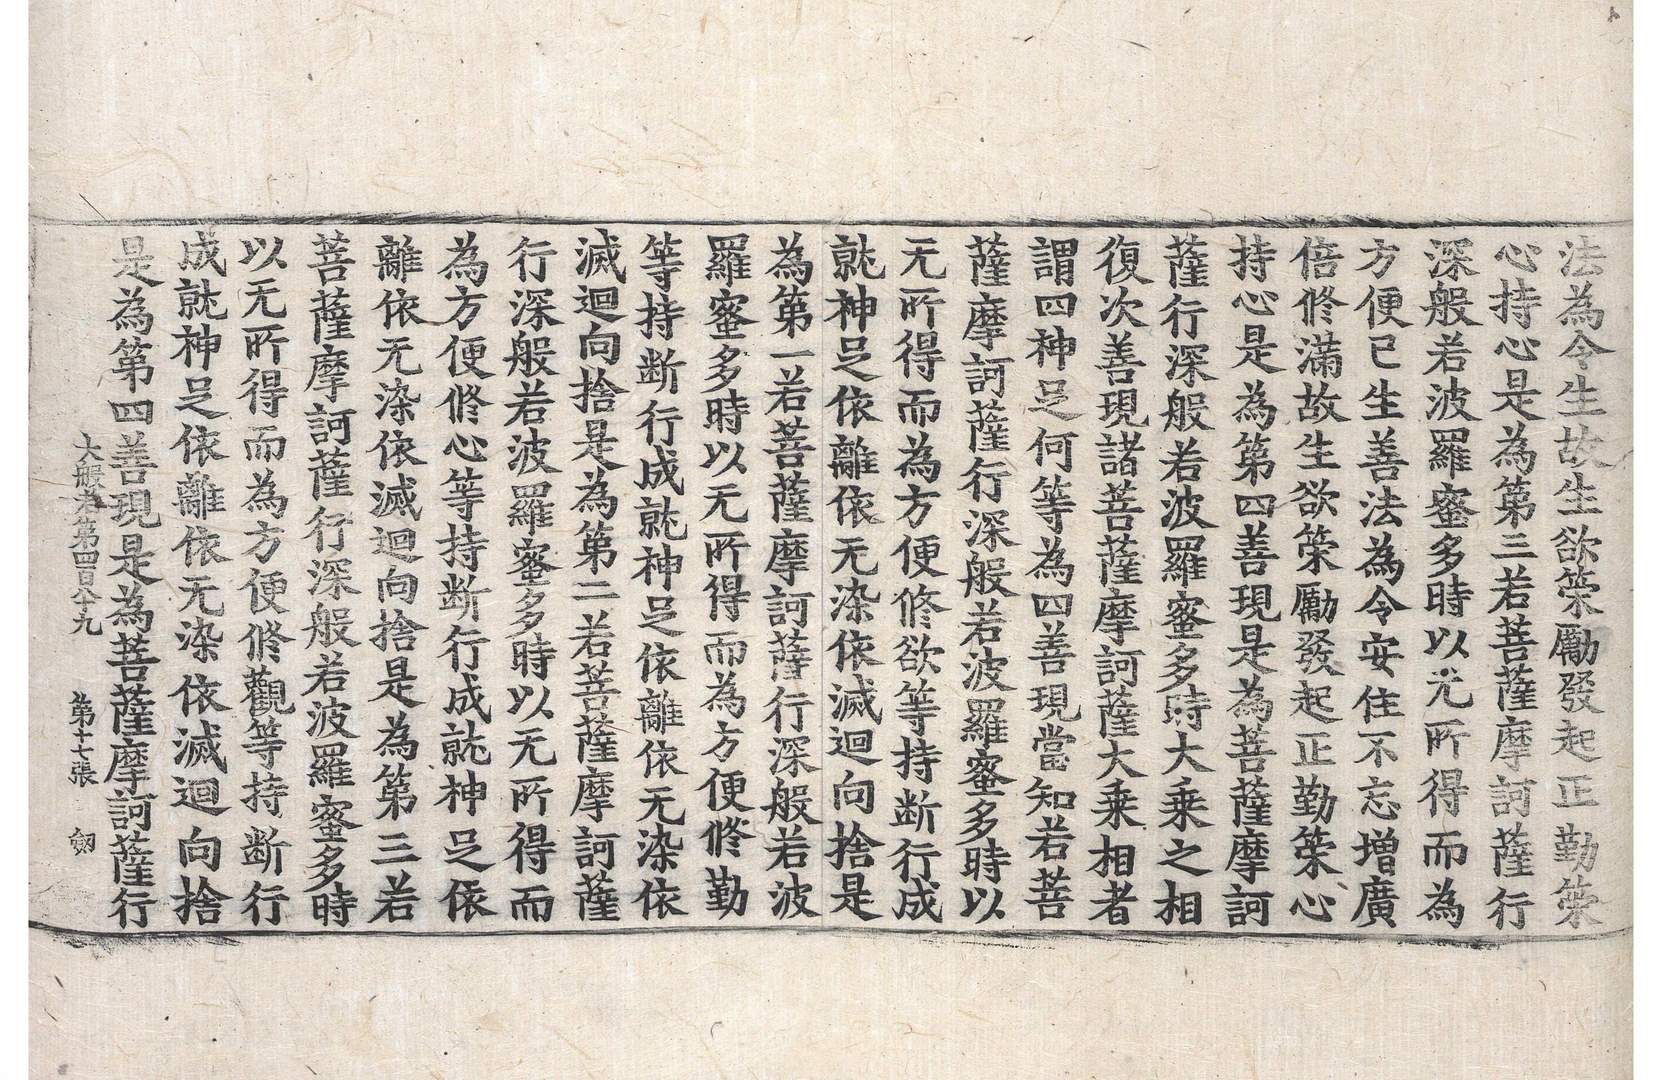 法為令生故生欲策勵發起正勤策
心持心是為第三若菩薩摩訶薩行
深般若波羅蜜多時以无所得而為
方便已生善法為令安住不忘增廣
倍修滿故生欲策勵發起正勤策心
持心是為第四善現是為菩薩摩訶
薩行深般若波羅蜜多時大乘之相
復次善現諸菩薩摩訶薩大乘相者
謂四神足何等為四善現當知若菩
薩摩訶薩行深般若波羅蜜多時以
无所得而為方便修欲等持断行成
就神足依離依无染依滅迴向捨是
為第一若菩薩摩訶薩行深般若波
羅蜜多時以无所得而為方便修勤
等持断行成就神足依離依无染依
滅迴向捨是為第二若菩薩摩訶薩
行深般若波羅蜜多時以无所得而
為方便修心等持断行成就神足依
離依无染依滅迴向捨是為第三若
菩薩摩訶薩行深般若波羅蜜多時
以无所得而為方便修觀等持断行
成就神足依離依无染依滅迴向捨
是為第四善現是為菩薩摩訶薩行
大般若第四百八十九 第十七張 劒